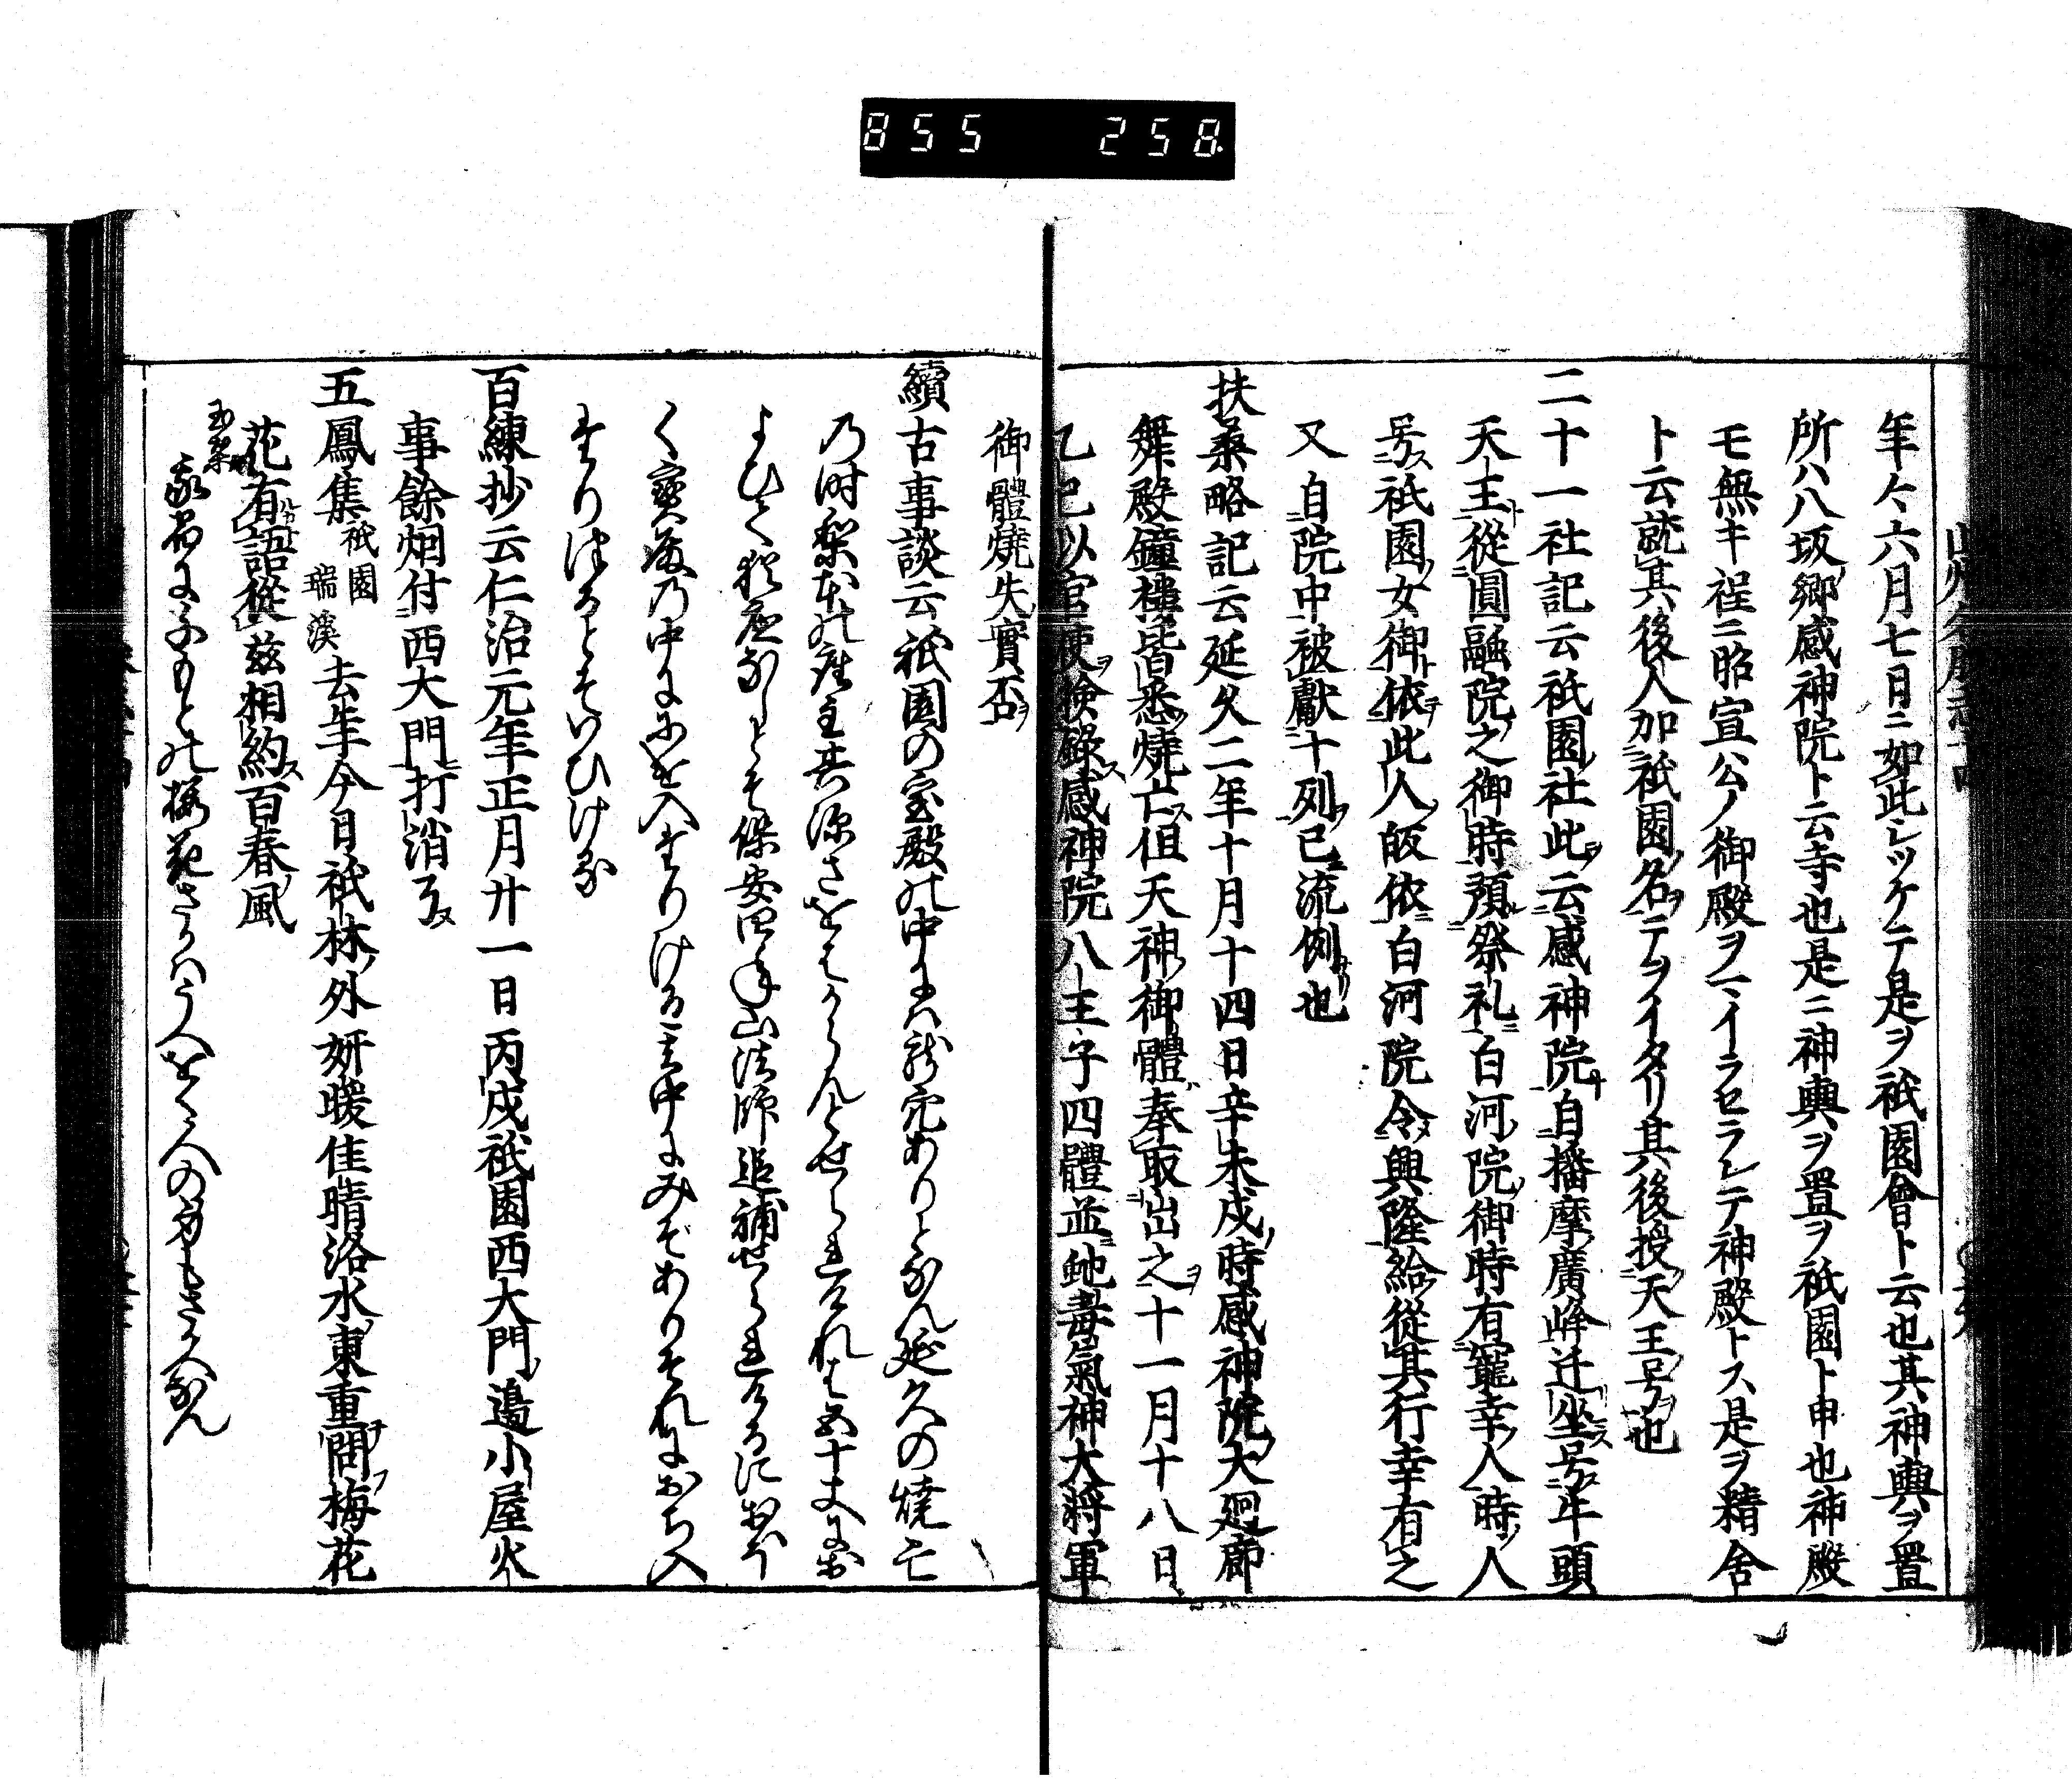 855 258
年々六月七日ニ如此シツケテ是ヲ祇園會ト云也其神輿ヲ置
所ハ八坂郷感神院ト云寺也是ニ神輿ヲ置ヲ祇園ト申也神殿
モ無キ程ニ昭宣公ノ御殿ヲマイラセラレテ神殿トス是ヲ精舎
ト云就其後人加祇園名テヲイタリ其後授天王号也
二十一社記云祇園社此云感神院自播摩廣峰迁坐号牛頭
天王從圓融院之御時預祭礼白河院御時有寵幸人時人
号祇園女御依此人皈依白河院令興隆給從其行幸有之
又自院中被獻十列已流例也
扶桒略記云延久二年十月十四日辛未戌時感神院大廻廊
舞殿鐘樓皆悉燒亡但天神御體奉取出之十一月十八日
乙巳以官使検錄感神院八王子四體並虵毒氣神大將軍
御體燒失實否
續古事談云祇園の宝殿の中には龍穴ありとなん延久の燒亡
乃時梨本の座主其深さをはからんとせられけれは五十丈にお
よひて猶底なしとそ保安四年山法師追捕せられけるに
く寶殿乃中ににけ入たりける
百練抄云仁治元年正月廿一日丙戌祇園西大門邉小屋火
事餘烟付西大門打消了
五鳳集 祇園 瑞溪 去年今日祇林外妍暖佳晴洛水東重問梅花
花有語從茲相約百春風
玉葉